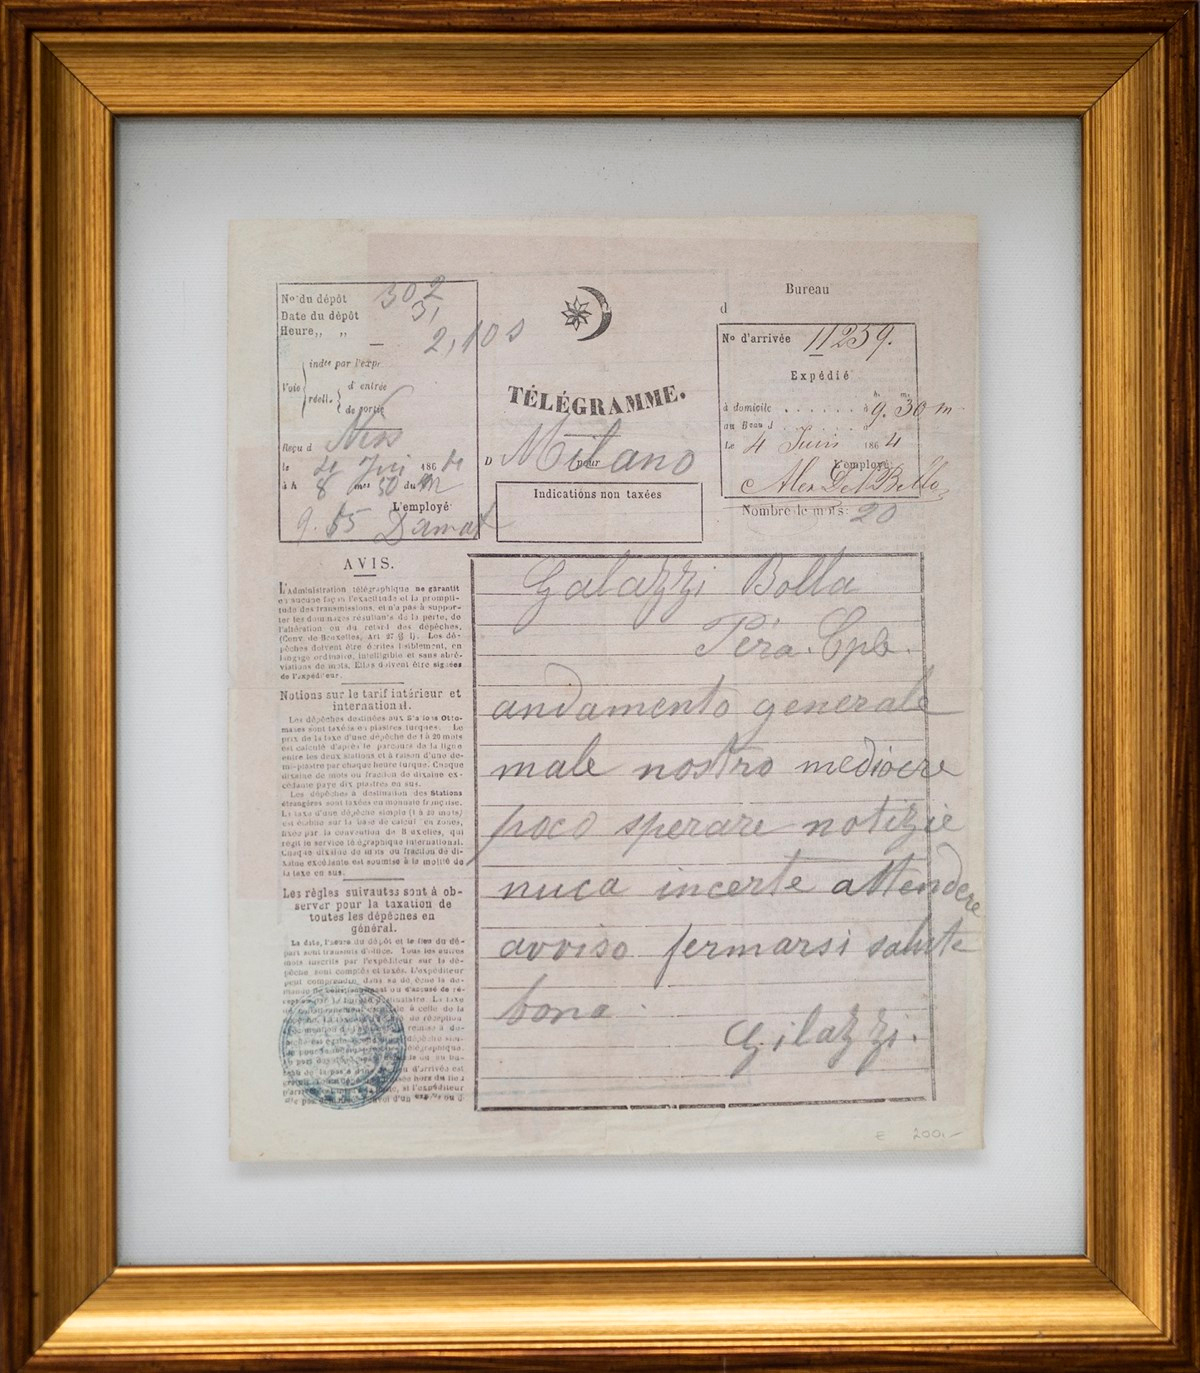 No du dépôt 302
Date du dépôt 31
Heure,, ,, 2,10 s
Voie
indre par l'expr
réell.
d' entrée
de sortie
Reçu d Niss
le 4 Juin 1864
à h 8 mes 50 du m
L'employé
9.55
TÉLÉGRAMME.
D Milano
pour
Indications non taxées
Bureau
d
No d'arrivée 11259.
Expédié
à domicile . . . . . . . à 9. 30 m
au Beau d
Le 4 Juin 1864
L'employé
Nombre de mots: 20
AVIS.
L'Administration télégraphique ne garantit
en aucune façon l'exactitude et la prompti-
tude des transmissions, et n'a pas à suppor-
ter les dommages résultants de la perte, de
l'altération ou du retard des dépêches.
(Conv. de Bruxelles, Art 27 § 1). Les dé-
pêches doivent être écrites lisiblement, en
langage ordinaire, intelligible et sans abré-
viations de mots. Elles doivent être signées
de l'expéditeur.
Notions sur le tarif intérieur et
international.
Les dépêches destinées aux Stations Otto-
manes sont taxées en piastres turques. Le
prix de la taxe d'une dépêche de 1 à 20 mots
est calculé d'après le parcours de la ligne
entre les deux stations et à raison d'une de-
mi-piastre par chaque heure turque. Chaque
dixaine de mots ou fraction de dixaine ex-
cédante paye dix piastres en sus.
Les dépêches à destination des Stations
étrangères sont taxées en monnaie française.
La taxe d'une dépêche simple (1 à 20 mots)
est établie sur la base de calcul en zones,
fixée par la convention de Bruxelles, qui
régit le service télégraphique international.
Chaque dixaine de mots ou fraction de di-
xaine excédante est soumise à la moitié de
la taxe en sus.
Les règles suivantes sont à ob-
server pour la taxation de
toutes les dépêches en
général.
La date, l'heure du dépôt et le lieu du dé-
part sont transmis d'office. Tous les autres
mots inscrits par l'expéditeur sur la dé-
pêche sont comptés et taxés. L'expéditeur
peut comprendre dans sa dépêche la de-
Galazzi Bolla
Péra. Cple.
andamento generale
male nostro mediocre
poco sperare notizie
nuca incerte attendere
avviso fermarsi salute
bona
Gilazzi.
E 200,-